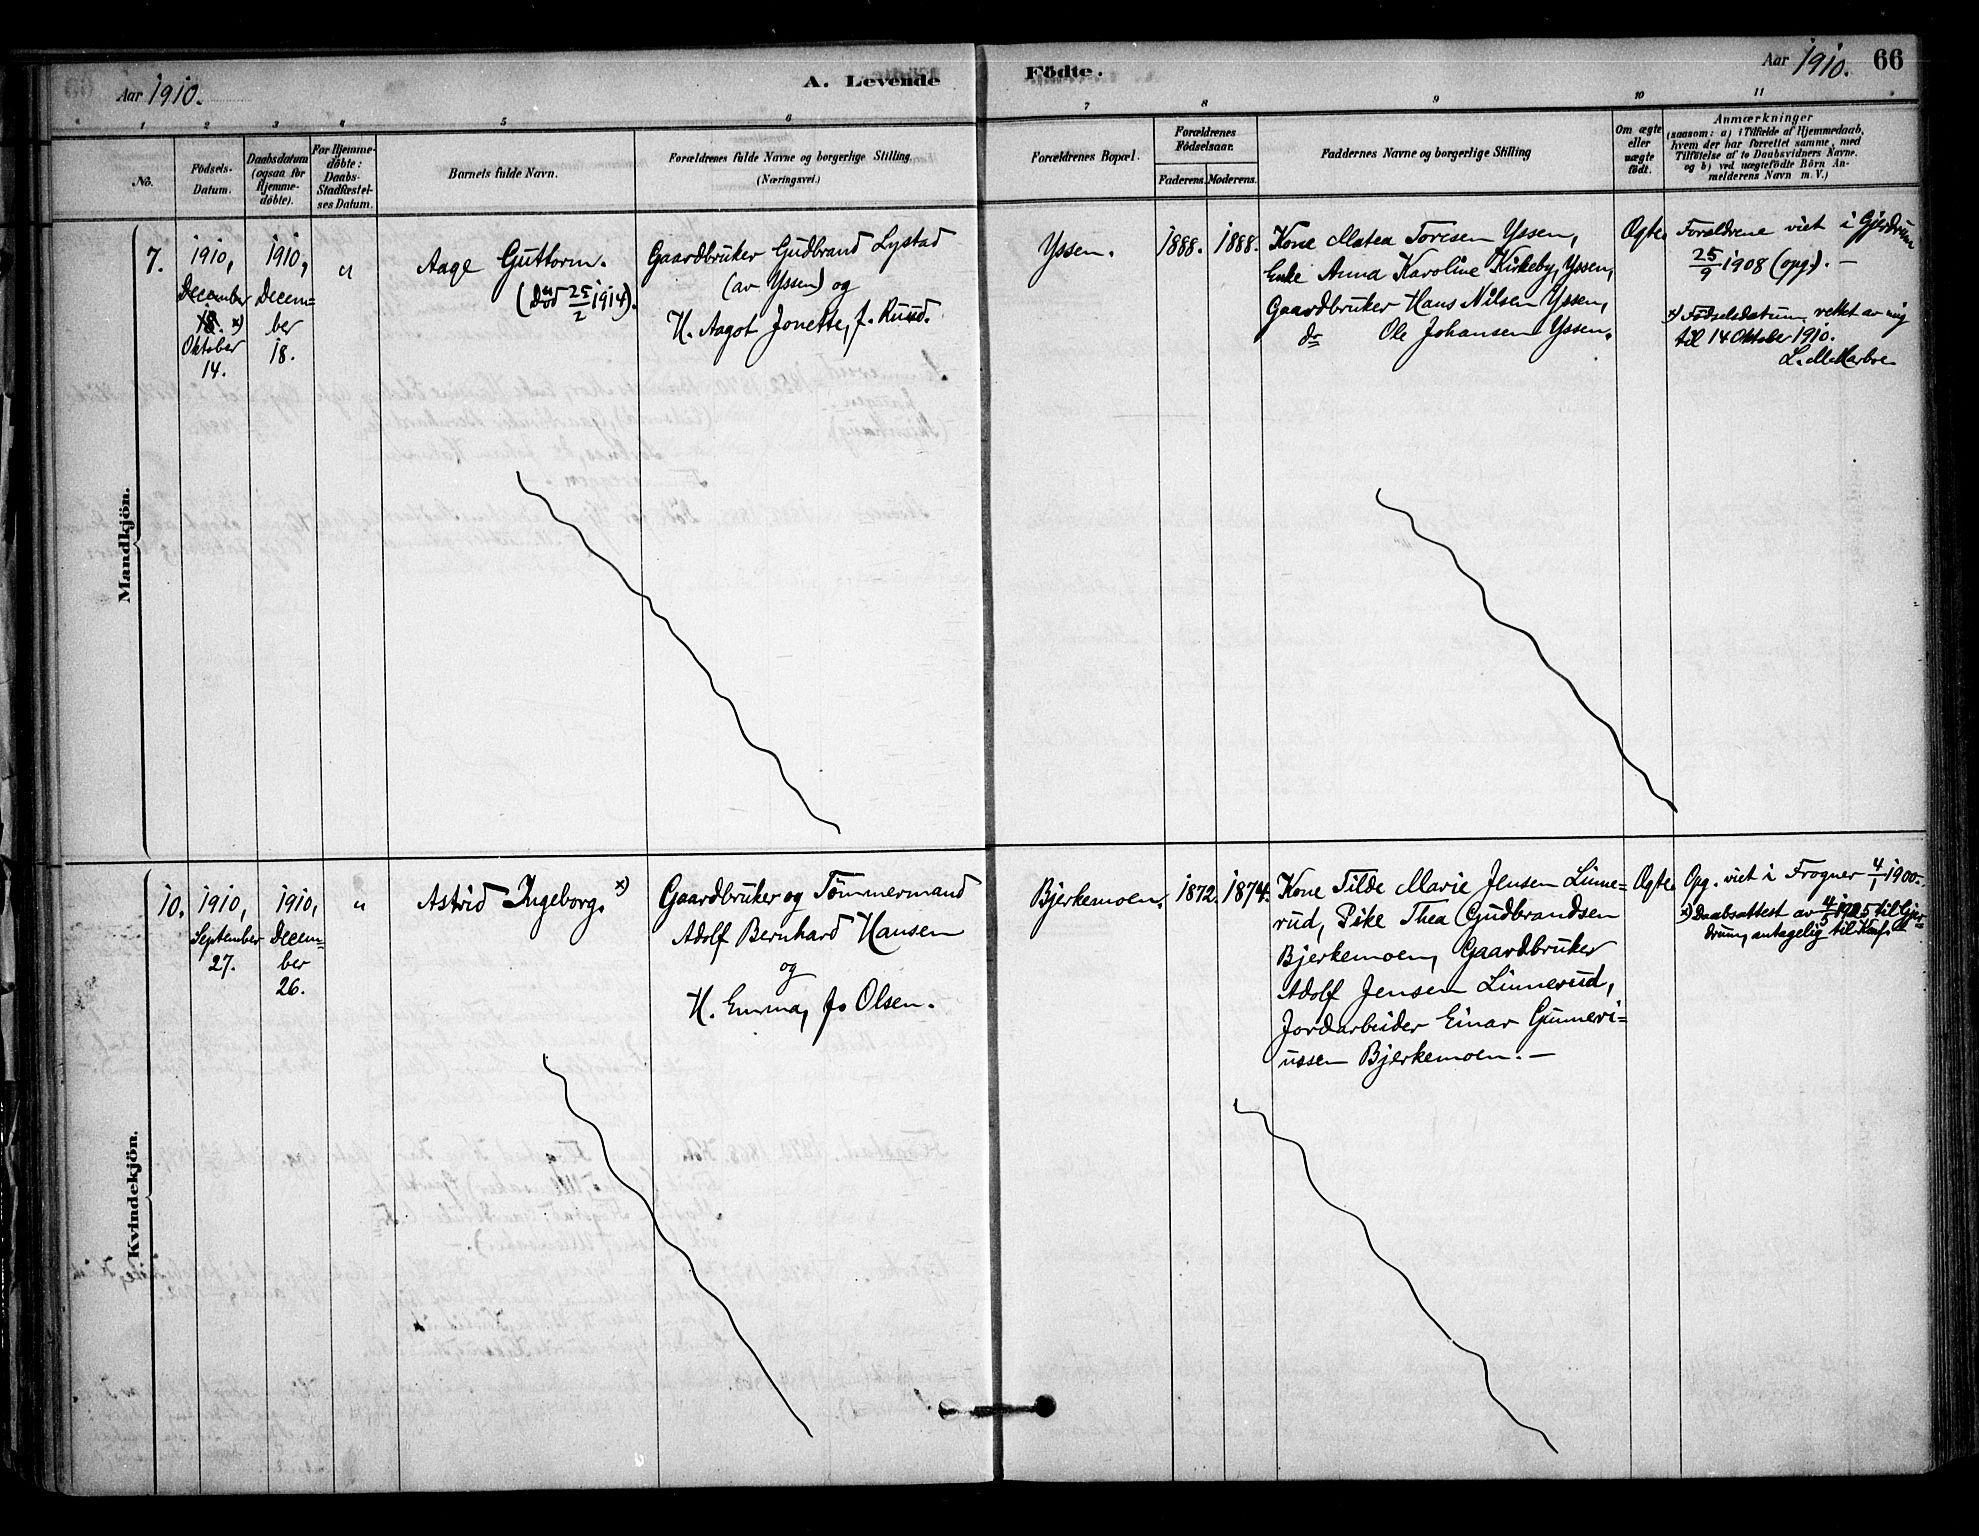 Aar 1910.
A. Levende
Födte.
Aar 1910.
66
1
2
3
4
5
6
7
8
9
10
11
No.
Födsels-
Datum.
Daabsdatum
(ogsaa for
Hjemme-
döbte).
For Hjemme-
döbte:
Daabs-
Stadfæstel-
ses Datum.
Barnets fulde Navn.
Forældrenes fulde Navne og borgerlige Stilling
(Næringsvei.)
Forældrenes Bopæl.
Forældrenes
Födselsaar.
Faderens.
Moderens.
Faddernes Navne og borgerlige Stilling
Om ægte
eller
uægte
födt.
Anmærkninger
(saasom: a) i Tilfælde af Hjemmedaab,
hvem der har forrettet samme, med
Tilföielse af to Daabsvidners Navne.
og b) ved uægtefödte Börn An-
melderens Navn m. V.)
Mandkjön.
7.
1910,
December
18. x)
Oktober
14.
1910,
Decem=
ber
18.
"
Aage Guttorm.
(död 25/2 1914).
Gaardbruker Gudbrand Lystad
(av Yssen) og
H. Aagot Jonette, f. Ruud.
Yssen.
1888.
1888.
Kone Matea Toresen Yssen,
Enke Anna Karoline Kirkeby, Yssen,
Gaardbruker Hans Nilsen Yssen,
do Ole Johansen Yssen.
Ægte
Forældrene viet i Gjerdrum
25/9 1908 (opg.). —
x) Födselsdatum rettet av mig
til 14 Oktober 1910.
Kvindekjön.
10.
1910,
September
27.
1910,
Decem=
ber
26.
"
Astrid Ingeborg. x)
Gaardbruker og Tömmermand
Adolf Bernhard Hansen
og
H. Emma, f. Olsen.
Bjerkemoen.
1872.
1874.
Kone Tilde Marie Jensen Linne=
rud, Pike Thea Gudbrandsen
Bjerkemoen, Gaardbruker
Adolf Jensen Linnerud,
Jordarbeider Einar Gunneri=
ussen Bjerkemoen. —
Ægte
Opg. viet i Frogner 4/1 1900.
x) Daabsattest av 4/5 1925 til Gjer-
drum, antagelig til Konf.